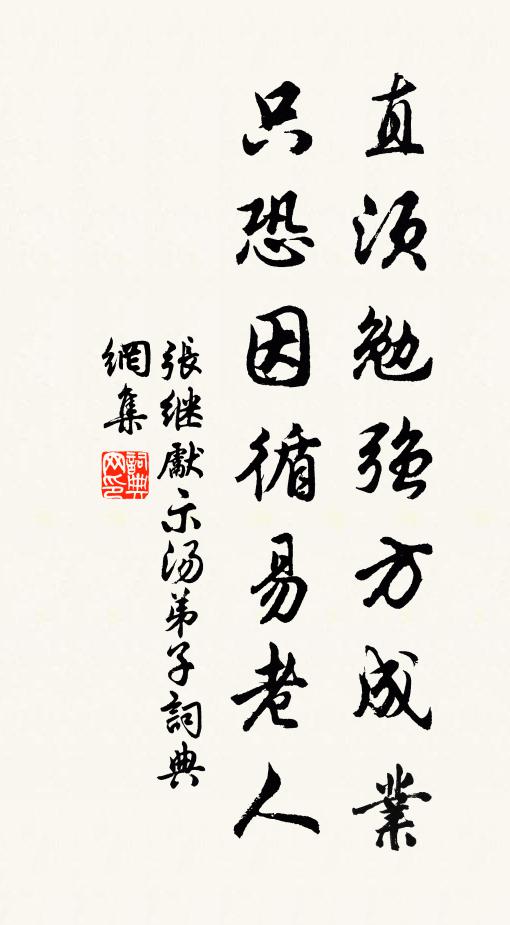 直須勉强方成業
只恐因循易老人
張继獻示汤弟子詞典
網集
詞典网印